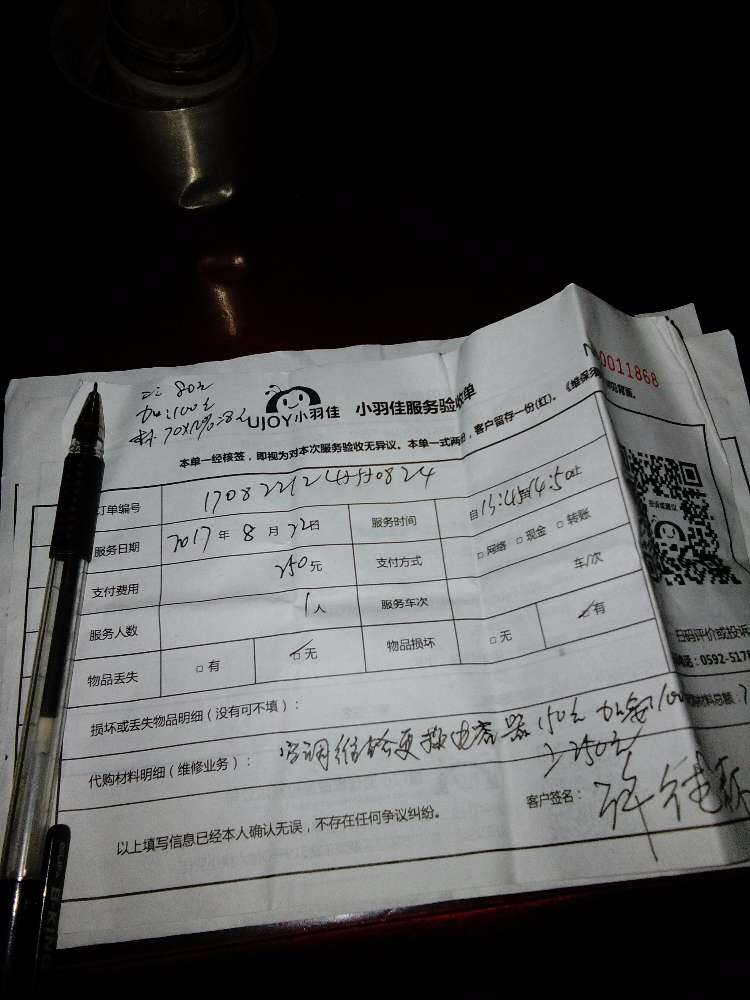 工: 80元
加: 100元
材: 70X12%=8元
UJOY小羽佳 小羽佳服务验收单
0011868
本单一经核签，即视为对本次服务验收无异议。本单一式两份，客户留存一份(红)。
订单编号
服务日期 2017年8月22日 服务时间
支付费用 250元 支付方式 □网络 □现金 □转账
服务人数 1人 服务车次 车/次
物品丢失 □有 □无 物品损坏 □无 有
损坏或丢失物品明细（没有可不填）：
代购材料明细（维修业务）： 空调维修更换电容器150元
250元
以上填写信息已经本人确认无误，不存在任何争议纠纷。 客户签名：
扫码评价或投诉
电话：0592-517